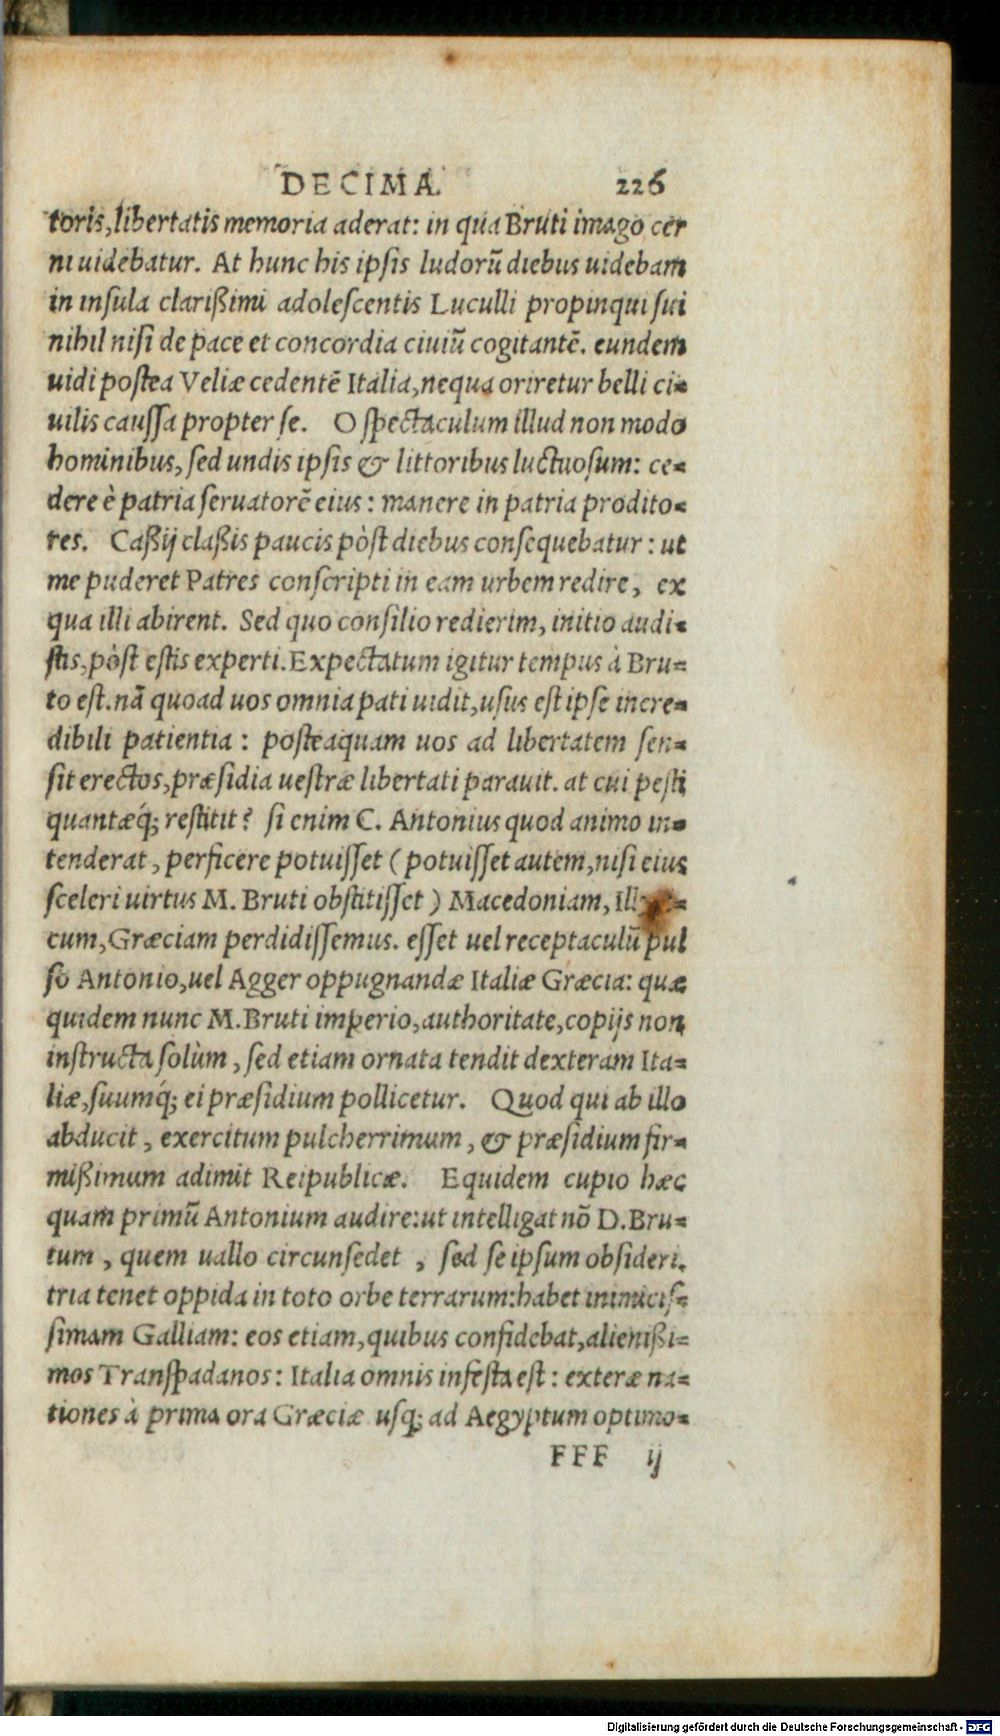 DECIMA 226
toris, libertatis memoria aderat: in qua Bruti imago cer
ni uidebatur. At hunc his ipsis ludorū diebus uidebam
in insula clarißimi adolescentis Luculli propinqui sui
nihil nisi de pace et concordia ciuiū cogitantē. eundem
uidi postea Veliæ cedentē Italia, nequa oriretur belli ci=
uilis caussa propter se. O spectaculum illud non modo
hominibus, sed undis ipsis & littoribus luctuosum: ce=
dere è patria seruatorē eius: manere in patria prodito=
res. Caßij claßis paucis pòst diebus consequebatur: ut
me puderet Patres conscripti in eam urbem redire, ex
qua illi abirent. Sed quo consilio redierim, initio audi=
stis, pòst estis experti. Expectatum igitur tempus à Bru=
to est. nā quoad uos omnia pati uidit, usus est ipse incre=
dibili patientia: posteaquam uos ad libertatem sen=
sit erectos, præsidia uestræ libertati parauit. at cui pesti
quantæq́; restitit? si enim C. Antonius quod animo in=
tenderat, perficere potuisset (potuisset autem, nisi eius
sceleri uirtus M. Bruti obstitisset) Macedoniam, Illyri=
cum, Græciam perdidissemus. esset uel receptaculū pul
so Antonio, uel Agger oppugnandæ Italiæ Græcia: quæ
quidem nunc M. Bruti imperio, authoritate, copijs non
instructa solùm, sed etiam ornata tendit dexteram Ita=
liæ, suumq́; ei præsidium pollicetur. Quod qui ab illo
abducit, exercitum pulcherrimum, & præsidium fir=
mißimum adimit Reipublicæ. Equidem cupio hæc
quam primū Antonium audire: ut intelligat nō D. Bru=
tum, quem uallo circunsedet, sed se ipsum obsideri.
tria tenet oppida in toto orbe terrarum: habet inimicis=
simam Galliam: eos etiam, quibus confidebat, alienißi=
mos Transpadanos: Italia omnis infesta est: exteræ na=
tiones à prima ora Græciæ usq; ad Aegyptum optimo=
FFF ij
Digitalisierung gefördert durch die Deutsche Forschungsgemeinschaft - DFG